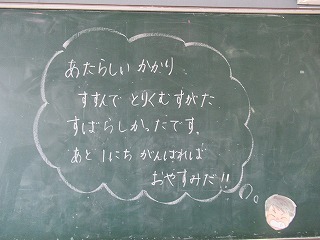 あたらしい かかり
すすんで とりくむすがた
すばらしかったです。
あと 1にち がんばれば
おやすみだ!!